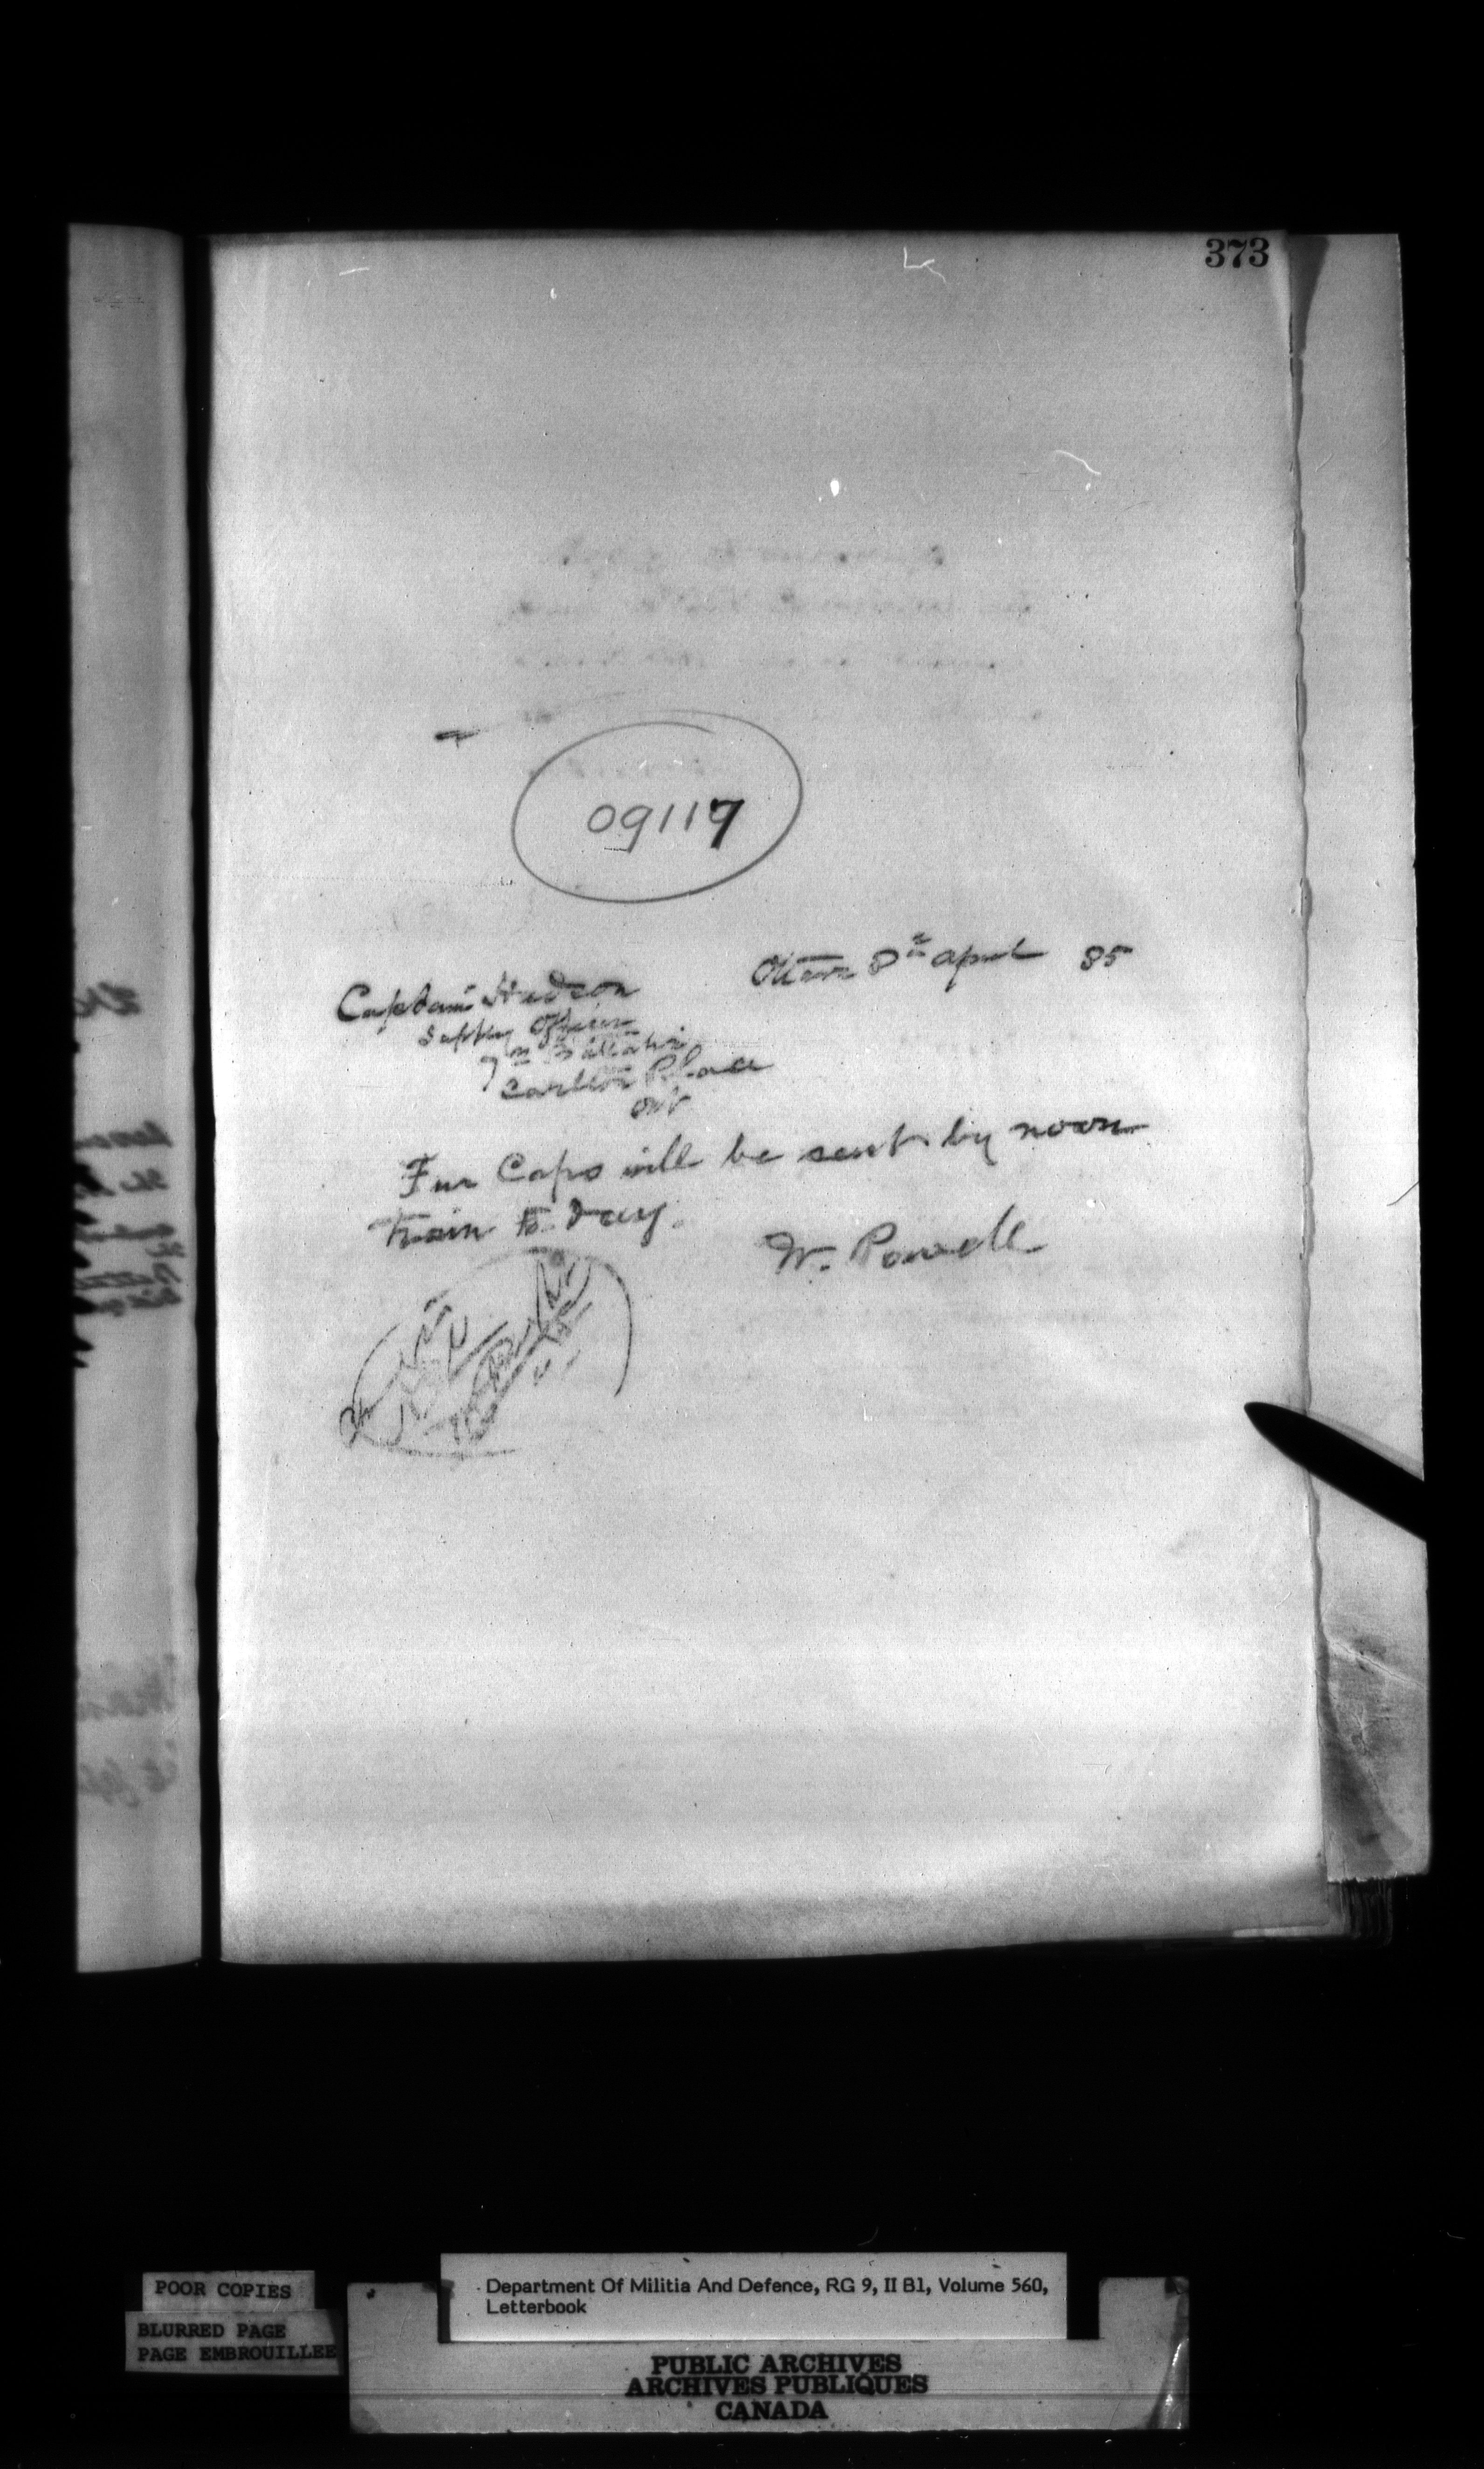 373
09117
Ottawa 8th April 85
Captain Hudson
Supply Officer
7th Battalion
Carleton Place
Ont
Fur Caps will be sent by noon
train to-day.
W. Powell
POOR COPIES
BLURRED PAGE
PAGE EMBROUILLEE
Department Of Militia And Defence, RG 9, II B1, Volume 560,
Letterbook
PUBLIC ARCHIVES
ARCHIVES PUBLIQUES
CANADA